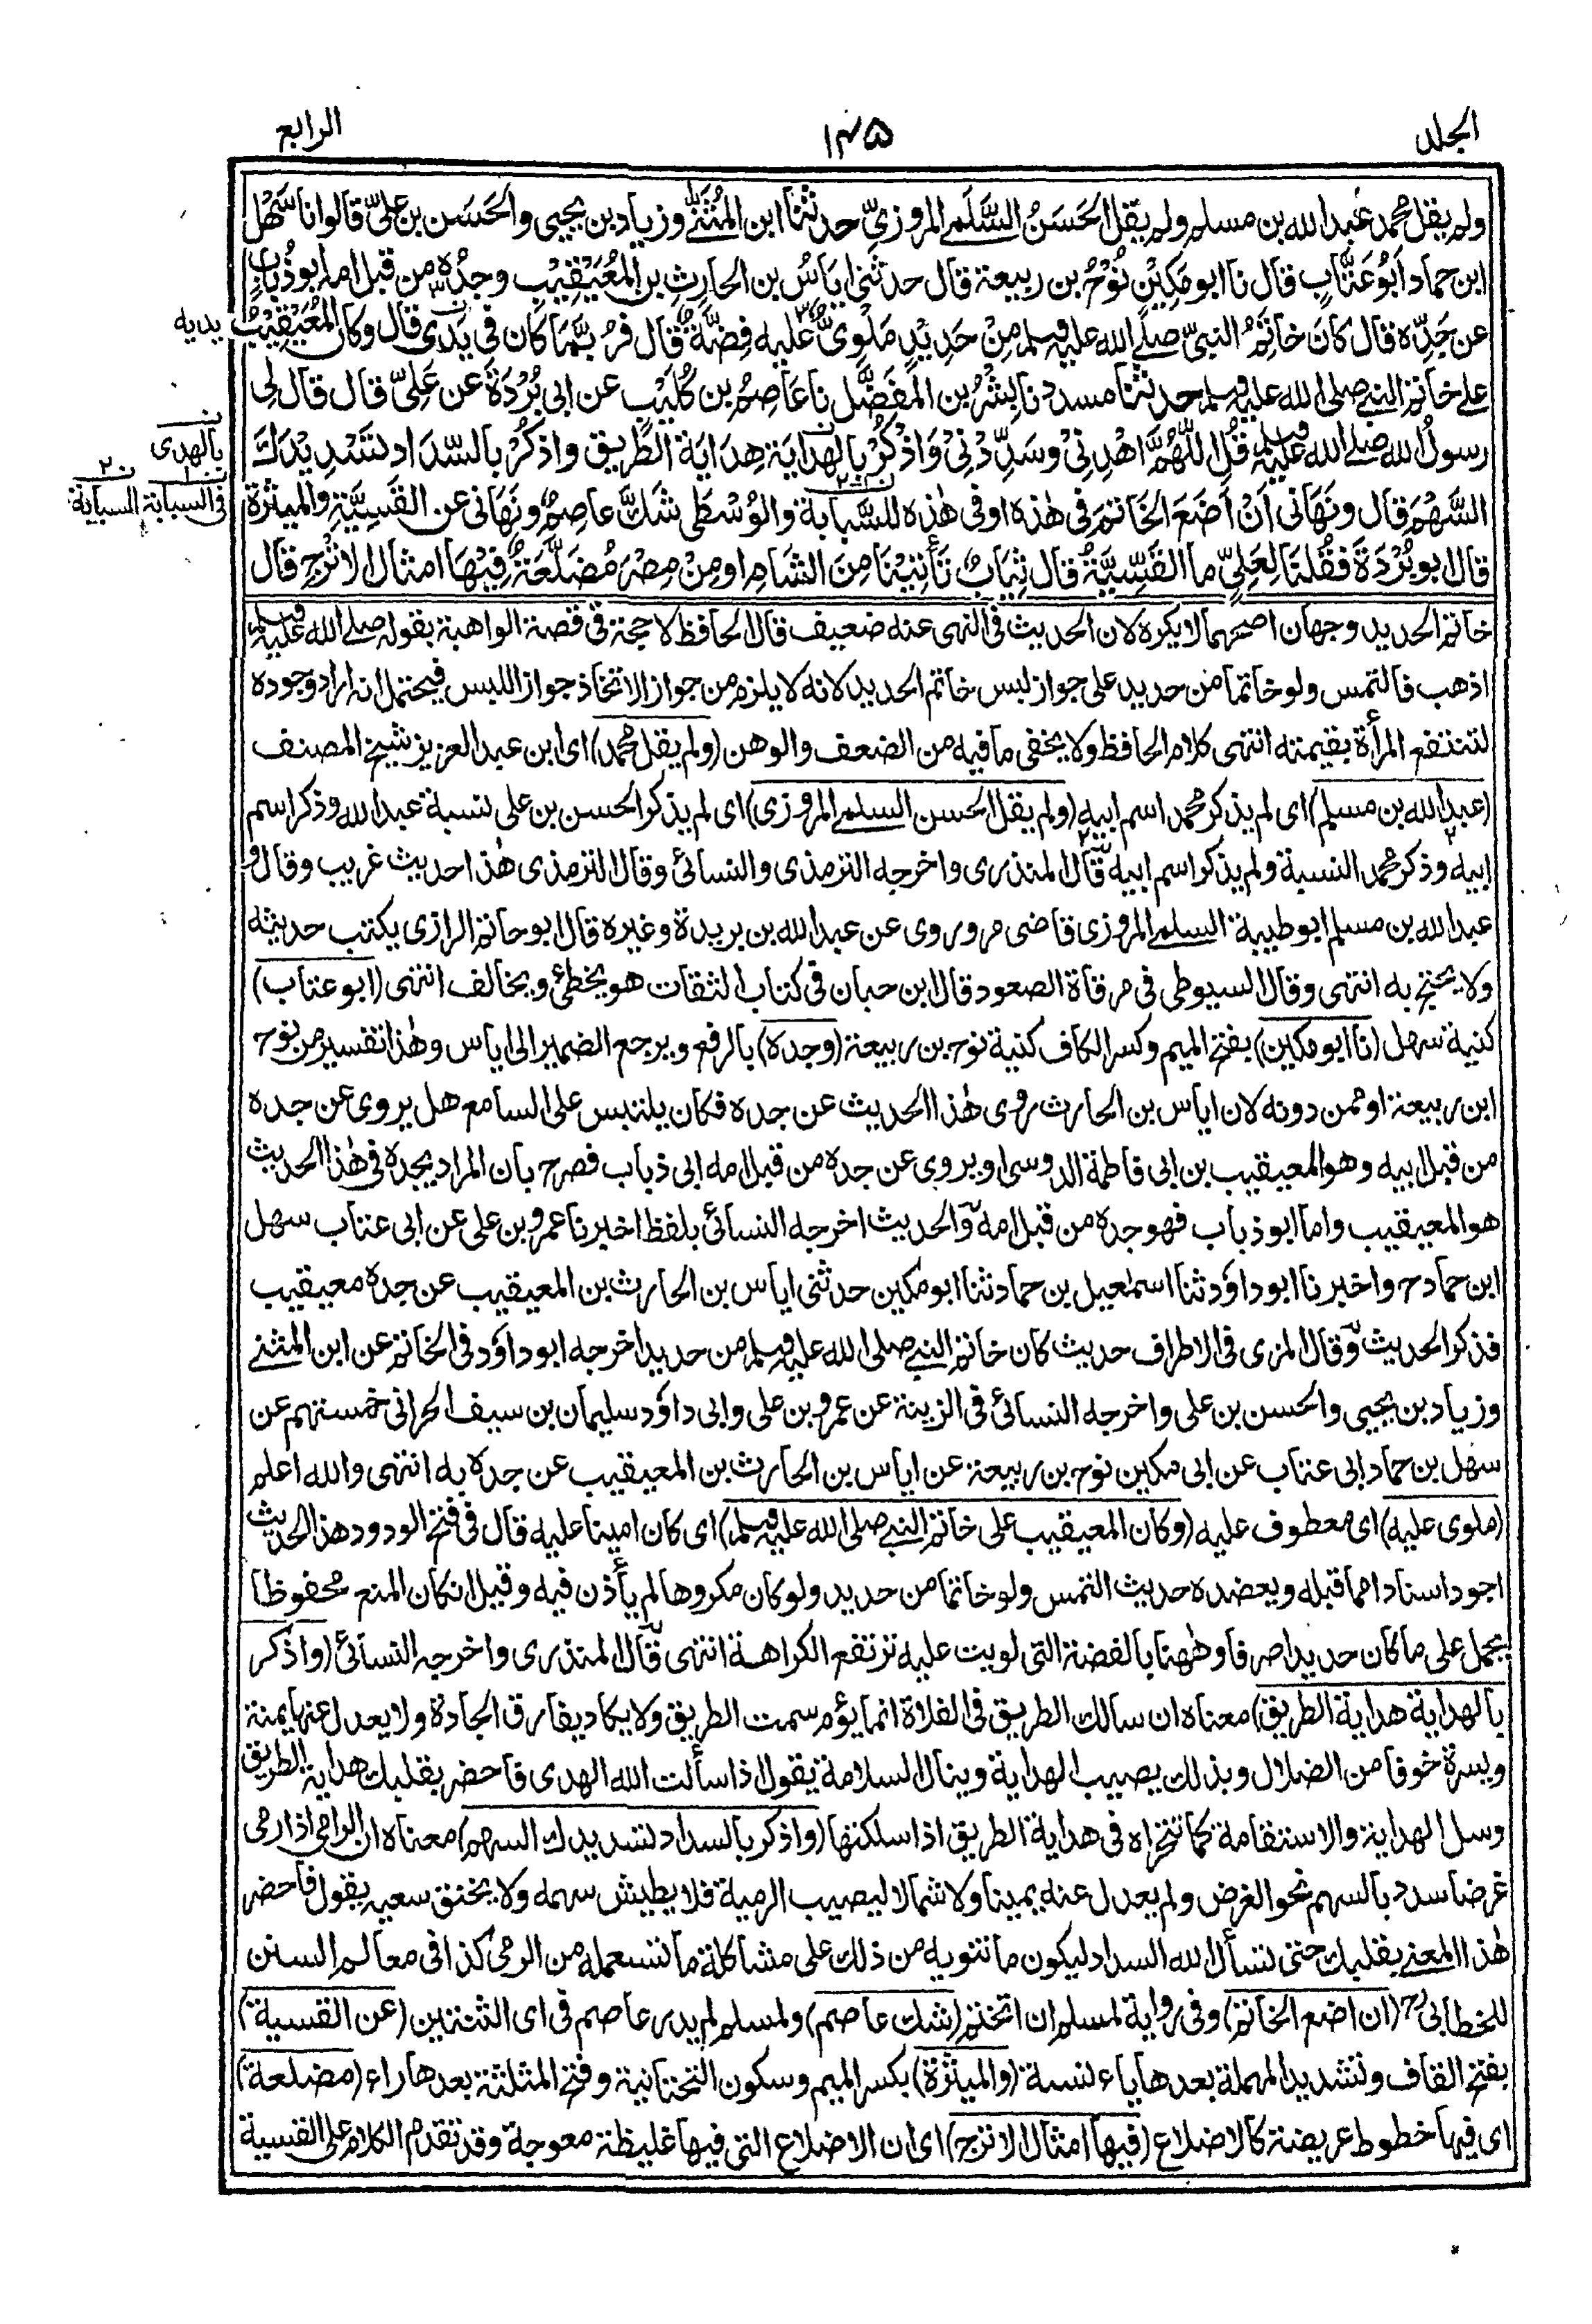 الجلد
١٤٥
الرابع
ولم يقل محمد عبد الله بن مسلم ولم يقل الحَسَنُ السُّلَمي المروزيّ حدثنا ابن المُثَنّٰى وزياد بن يحيى والحَسَن بن عليّ قالوا نا سَهْل
ابن حماد اَبُو عَتَّابٍ قال نا ابو مَكِيْنٍ نُوْحُ بن ربيعة قال حدثني اِيَاسُ بن الحارِثِ بن المُعَيْقِيْبِ وجدُه من قبل امه ابو ذُبَابٍ
عن جَدِّه قال كَانَ خاتَمُ النبيّ صلے الله عليه وسلم مِنْ حَدِيْدٍ مَلْوِيٌّ عليه فِضَّةٌ قال فرُبَّمَا كَان في يَدَى قال وكان المُعَيْقِيْبُ
يديه
على خاتم النبي صلى الله عليه وسلم حدثنا مسدد نا بِشْرُ بن المُفَضَّل نا عَاصِمُ بن كُلَيْبٍ عن ابي بُرْدَةَ عن عَلِيّ قال قال لي
رسولُ الله صلے الله عليه وسلم قُلِ اللّٰهُمَّ اهْدِنِيْ وَسَدِّدْنِيْ وَاذْكُرْ بالهِدَايَة هِدَايَةَ الطَّرِيق واذكُرْ بالسَّدَاد تَسْدِيْدَكَ
بالهدى
السَّهْمَ قال ونَهَاني اَنْ اَضَعَ الخَاتَمَ في هٰذه او في هٰذه للسَّبَّابَة والوُسْطٰى شَكَّ عاصِمٌ ونَهَاني عن القَسِّيَّةِ والميثَرَة
في السبابة السبابة
قال ابو بُرْدَةَ فقُلنَا لِعَلِيّ ما القَسِّيَّةُ قال ثِيَابٌ تَأْتِيْنَا مِنَ الشَّامِ او مِنْ مِصْرَ مُضَلَّعَةٌ فِيْهَا امثال الاتْرُجِ قال
خاتم الحديد وجهان اصحهما لا يكره لان الحديث في النهي عنه ضعيف قال الحافظ لا حجة في قصة الواهبة بقوله صلے الله عليه وسلم
اذهب فالتمس ولو خاتما من حديد على جواز لبس خاتم الحديد لانه لا يلزم من جواز الاتخاذ جواز اللبس فيحتمل انه اراد وجوده
لتنتفع المرأة بقيمته انتهى كلام الحافظ ولا يخفى ما فيه من الضعف والوهن (ولم يقل محمد) اى ابن عبد العزيز شيخ المصنف
(عبد الله بن مسلم) اى لم يذكر محمد اسم ابيه (ولم يقل الحسن السلمي المروزى) اى لم يذكر الحسن بن على نسبة عبد الله وذكر اسم
ابيه وذكر محمد النسبة ولم يذكر اسم ابيه قال المنذرى واخرجه الترمذى والنسائى وقال الترمذى هٰذا حديث غريب وقال و
عبد الله بن مسلم ابو طيبة السلمي المروزى قاضى مرو روى عن عبد الله بن بريدة وغيره قال ابو حاتم الرازى يكتب حديثه
ولا يحتج به انتهى وقال السيوطى في مرقاة الصعود قال ابن حبان في كتاب الثقات هو يخطئ ويخالف انتهى (ابو عتاب)
كنية سهل (نا ابو مكين) بفتح الميم وكسر الكاف كنية نوح بن ربيعة (وجده) بالرفع ويرجع الضمير الى اياس وهٰذا تفسير من نوح
ابن ربيعة او ممن دونه لان اياس بن الحارث روى هٰذا الحديث عن جده فكان يلتبس على السامع هل يروى عن جده
من قبل ابيه وهو المعيقيب بن ابى فاطمة الدوسى او يروى عن جده من قبل امه ابى ذباب فصرح بان المراد بجده في هٰذا الحديث
هو المعيقيب واما ابو ذباب فهو جده من قبل امه والحديث اخرجه النسائى بلفظ اخبرنا عمرو بن على عن ابى عتاب سهل
ابن حماد ح واخبرنا ابو داؤد ثنا اسمٰعيل بن حماد ثنا ابو مكين حدثنى اياس بن الحارث بن المعيقيب عن جده معيقيب
فذكر الحديث وقال المزى في الاطراف حديث كان خاتم النبي صلى الله عليه وسلم من حديد اخرجه ابو داؤد في الخاتم عن ابن المثنے
وزياد بن يحيى والحسن بن على واخرجه النسائى في الزينة عن عمرو بن على وابى داؤد سليمان بن سيف الحرانى خمستهم عن
سهل بن حماد ابى عتاب عن ابى مكين نوح بن ربيعة عن اياس بن الحارث بن المعيقيب عن جده به انتهى والله اعلم
(ملوى عليه) اى معطوف عليه (وكان المعيقيب على خاتم النبي صلى الله عليه وسلم) اى كان امينا عليه قال في فتح الودود هذا الحديث
اجود اسنادا مما قبله ويعضده حديث التمس ولو خاتما من حديد ولو كان مكروها لم يأذن فيه وقيل ان كان المنع محفوظا
يحمل على ما كان حديدا صرفا وهٰهنا بالفضة التى لويت عليه ترتفع الكراهة انتهى قال المنذرى واخرجه النسائى (واذكر
بالهداية هداية الطريق) معناه ان سالك الطريق في الفلاة انما يؤم سمت الطريق ولا يكاد يفارق الجادة ولا يعدل عنها يمنة
ويسرة خوفا من الضلال وبذلك يصيب الهداية وينال السلامة يقول اذا سألت الله الهدى فاحضر بقلبك هداية الطريق
وسل الهداية والاستقامة كما تتحراه في هداية الطريق اذا سلكتها (واذكر بالسداد تسديدك السهم) معناه ان الرامى اذا رمى
غرضا سدد بالسهم نحو الغرض ولم يعدل عنه يمينا ولا شمالا ليصيب الرمية فلا يطيش سهمه ولا يخفق سعيه يقول فاحضر
هٰذا المعنے بقلبك حتى تسأل الله السداد ليكون ما تنويه من ذلك على مشاكلة ما تستعمله من الرمى كذا في معالم السنن
للخطابى رح (ان اضع الخاتم) وفى رواية لمسلم ان اتختم (شك عاصم) ولمسلم لم يدر عاصم في اى الثنتين (عن القسية)
بفتح القاف وتشديد المهملة بعدها ياء نسبة (والميثرة) بكسر الميم وسكون التحتانية وفتح المثلثة بعدها راء (مضلعة)
اى فيها خطوط عريضة كالاضلاع (فيها امثال الاترج) اى ان الاضلاع التى فيها غليظة معوجة وقد تقدم الكلام على القسية